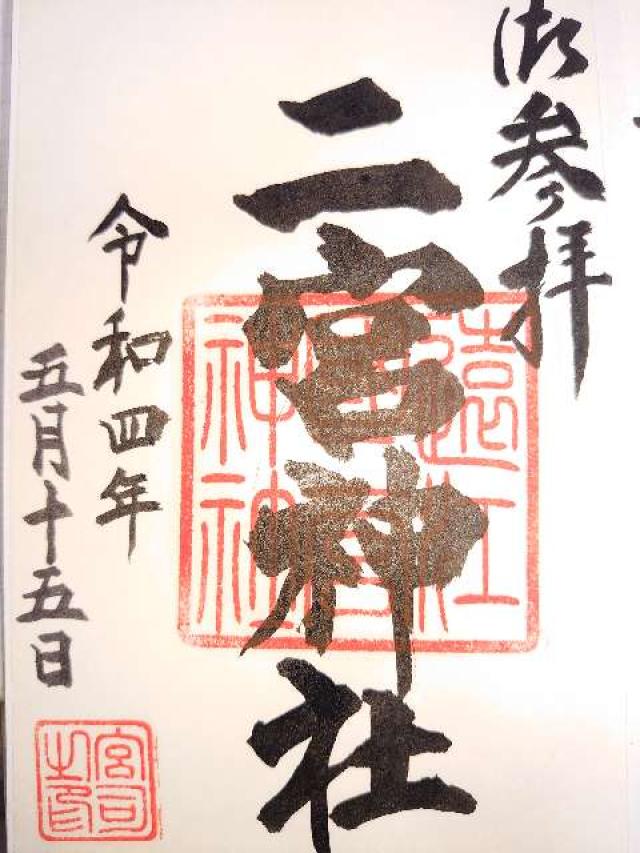 御参拝
二宮神社
令和四年
五月十五日
遠江
二宮
神社
宮司
之印